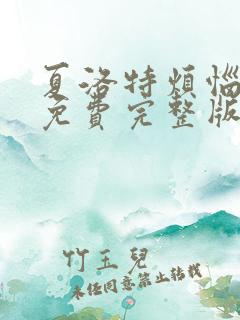 夏洛特烦恼
免費完整版
竹玉兒
未经同意禁止转载